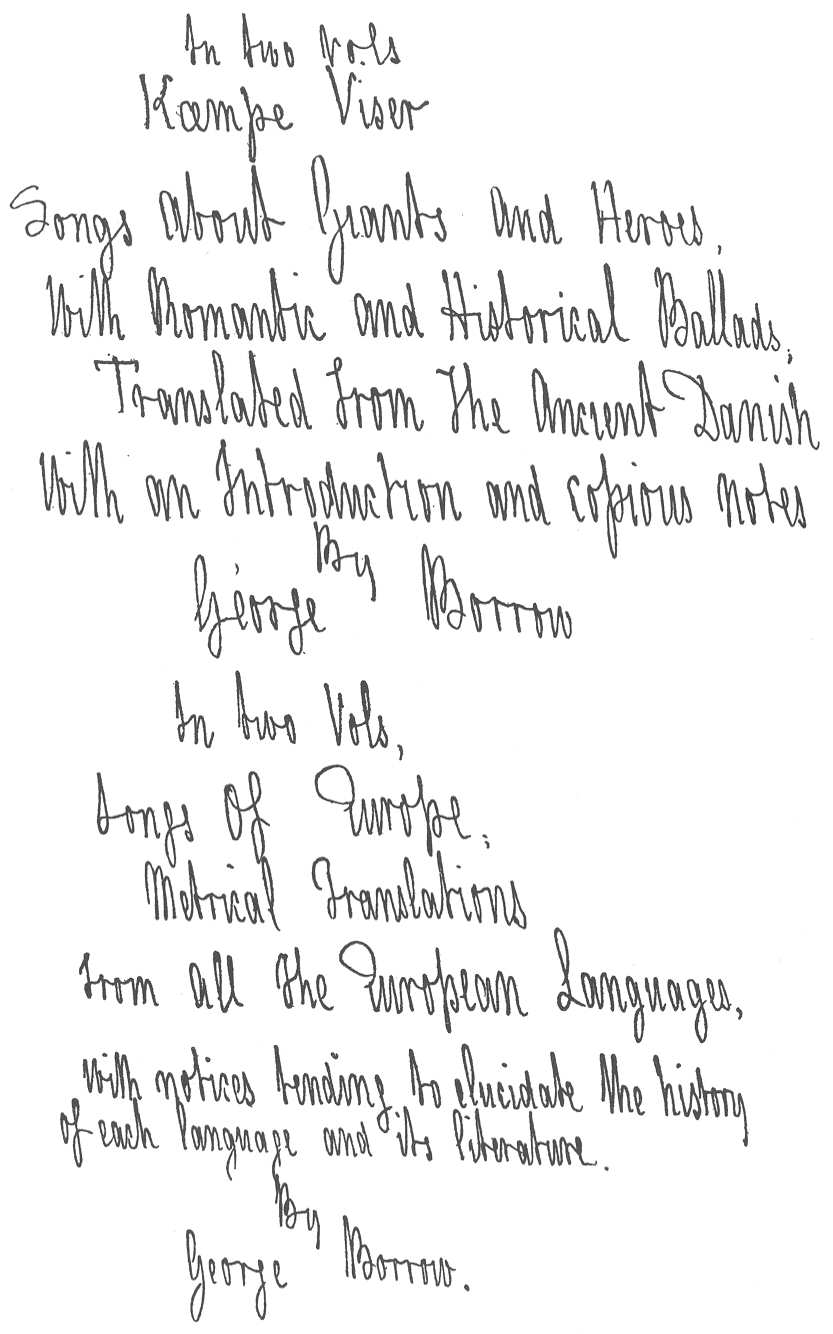 In two vols
Kæmpe Viser
Songs about Giants and Heroes,
With Romantic and Historical Ballads,
Translated from the Ancient Danish
With an Introduction and copious notes
By
George Borrow
In two Vols,
Songs Of Europe;
Metrical Translations
from all the European Languages,
with notices tending to elucidate the history
of each language and its literature.
By
George Borrow.